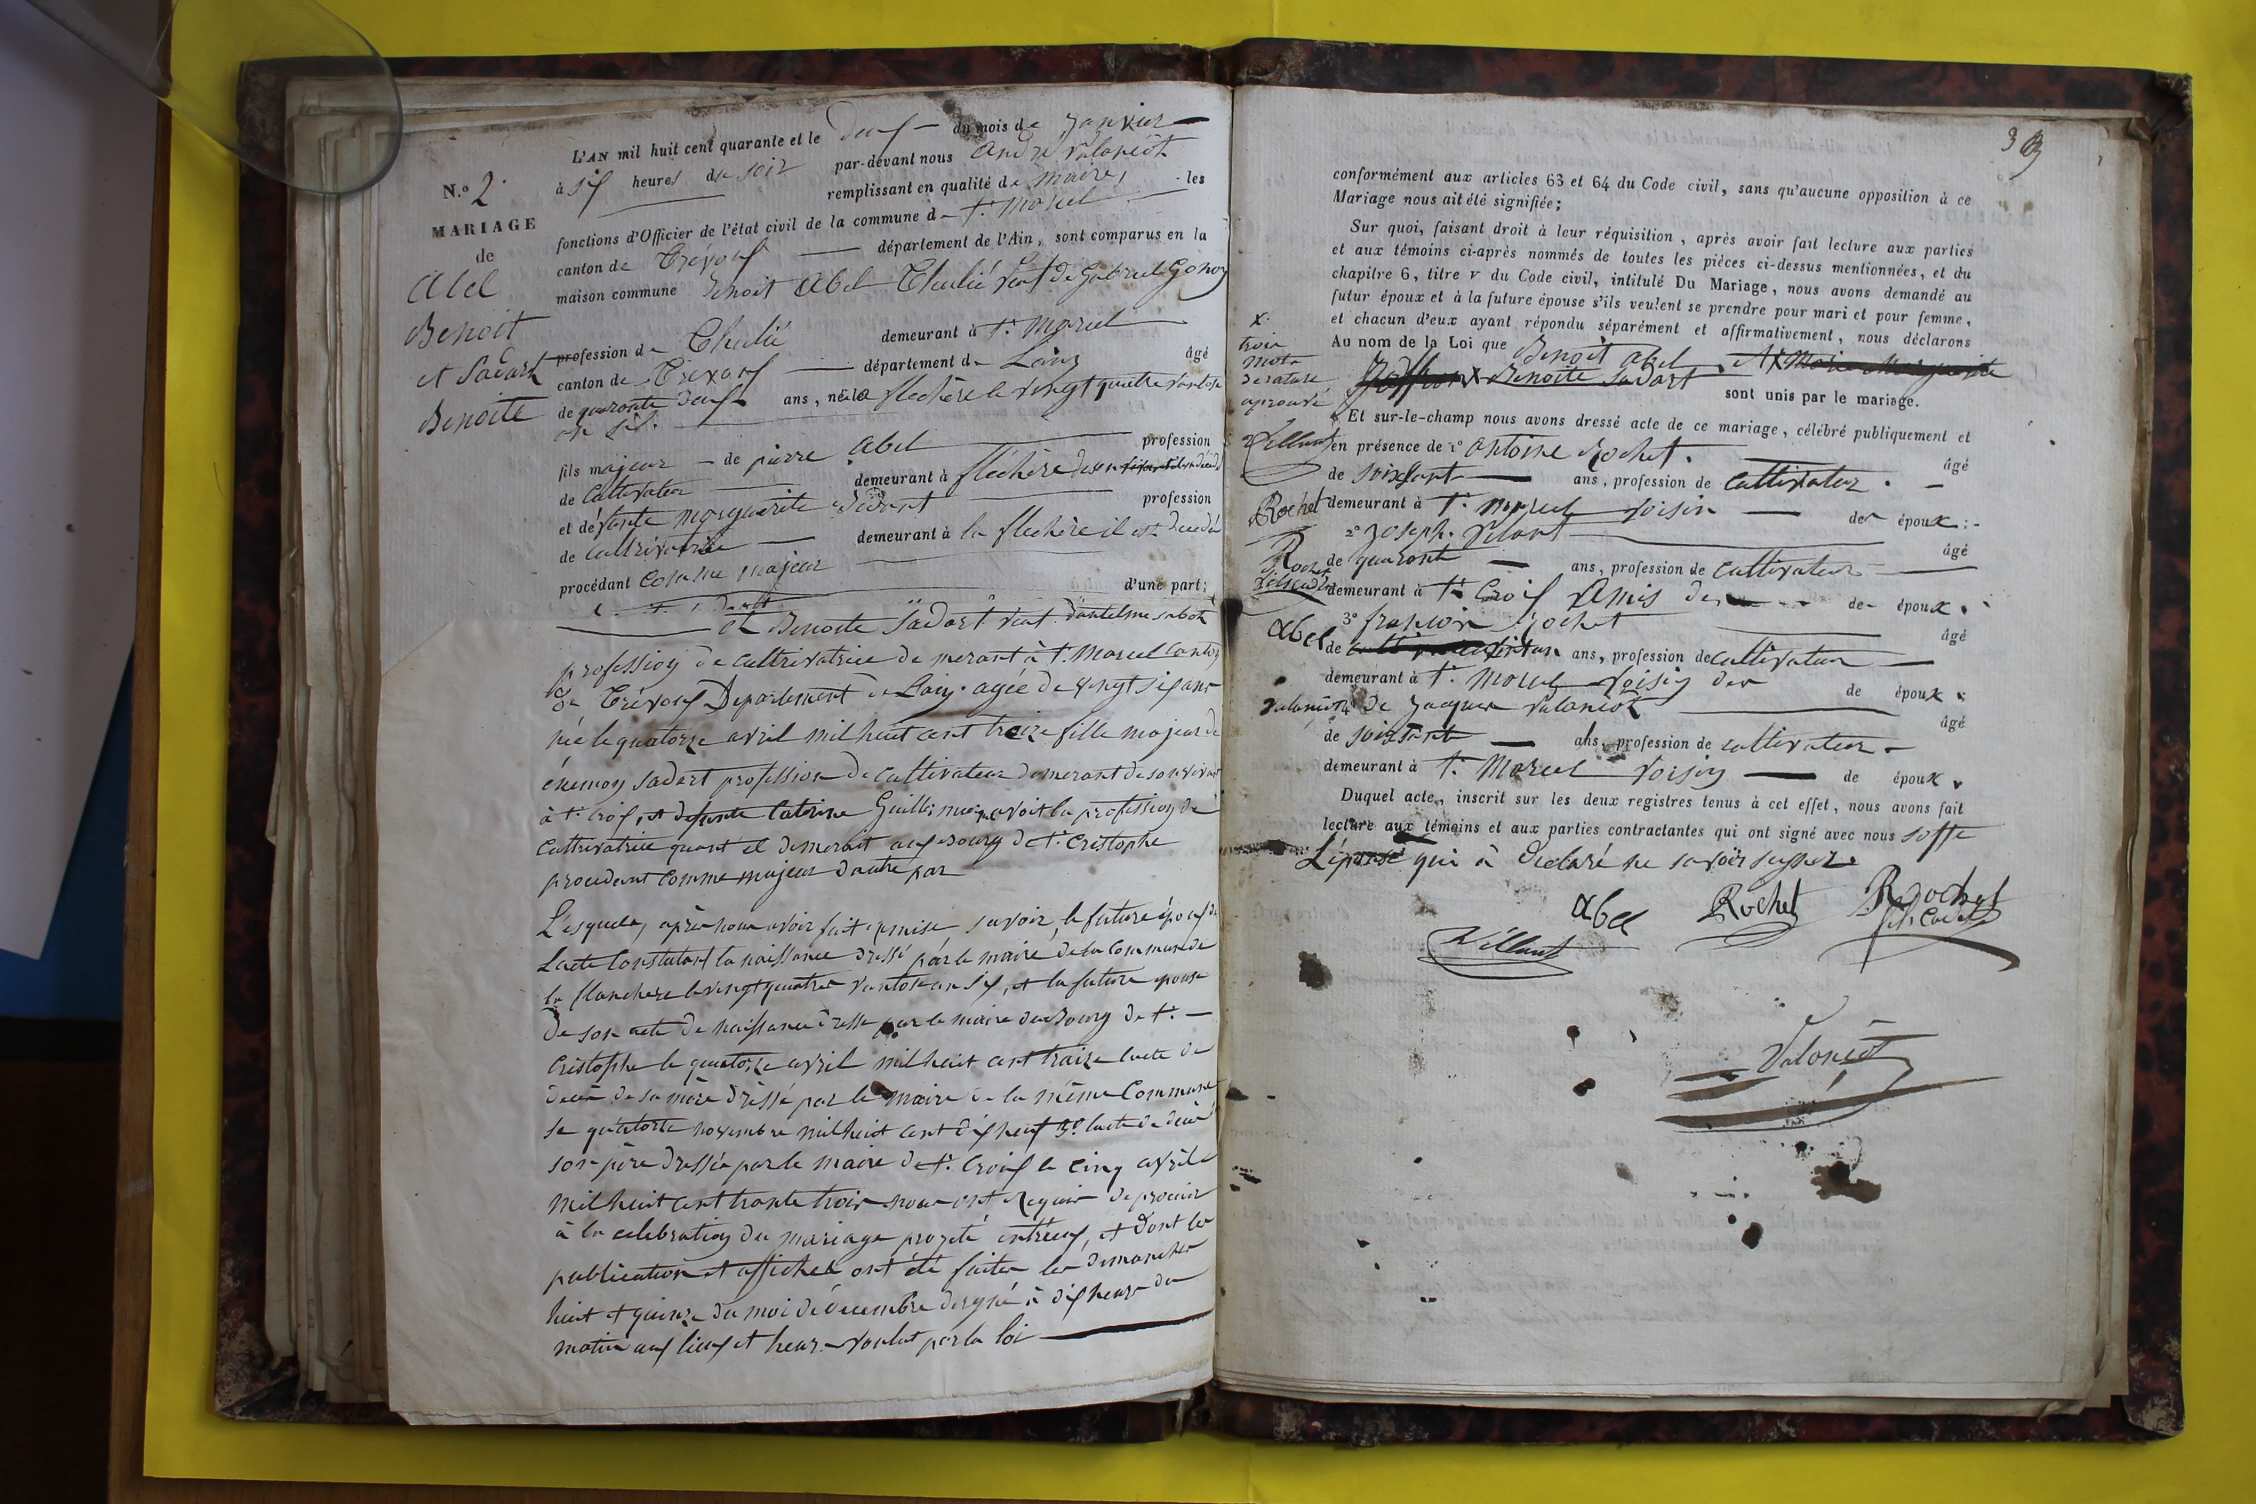 N.º 2.
MARIAGE
de
Abel
Benoit
et Sadart
Benoite
L'AN mil huit cent quarante et le deux du mois de Janvier
à six heures du soir par-devant nous André Valancot
remplissant en qualité de maire, les
fonctions d'Officier de l'état civil de la commune de St. Marcel
canton de Trévoux département de l'Ain, sont comparus en la
maison commune Benoit Abel veuf de Gabriel Gonoy
profession de demeurant à St. Marcel
canton de Trévoux département de Lain âgé
de quarante deux ans, né à la flechère le vingt quatre vantose
an six.
fils majeur de pierre Abel profession
de Cultivateur demeurant à fléchère
et défunte marguerite profession
de cultivatrice demeurant à la flechère il est decedé
procédant comme majeur
d'une part;
et Benoite Sadart
profession de cultivatrice demerant à St. Marcel canton
de Trévoux Departement de Lain. agée de vingt six ans
née le quatorze avril mil huit cent traize fille majeur de
énemon Sadart profession de cultivateur demerant de son vivant
à St. Croix, et defunte Catrine Guillemin avoit la profession de
cultivatrice quant el demerait aux Bourg de St. Cristophe
procedant comme majeur dautre par
Lesquels, après nous avoir fait remise savoir, le future époux de
Lacte Constatant la naissance dressé par le maire de la Commune de
la flanchere le vingt quatre vantose an six, et la future epouse
de son acte de naissance dressé par le maire du Bourg de St.
Cristophe le quatorze avril mil huit cent traize lacte de
décès de sa mère dréssé par le maire de la même Commune
le quatorze novembre mil huit cent dix neuf 3º lacte de décè
son père dréssée par le maire de St. Croix le cinq avril
mil huit cent trante trois nous ont requis de procéder
à la celebration du mariage projeté entreux, et dont les
publication et affiches ont été faites les dimanches
huit et quinze du moi de décembre dernié à dix heure du
matin aux lieux et heure voulut par la loi
3
conformément aux articles 63 et 64 du Code civil, sans qu'aucune opposition à ce
Mariage nous ait été signifiée;
Sur quoi, faisant droit à leur réquisition, après avoir fait lecture aux parties
et aux témoins ci-après nommés de toutes les pièces ci-dessus mentionnées, et du
chapitre 6, titre v du Code civil, intitulé Du Mariage, nous avons demandé au
futur époux et à la future épouse s'ils veulent se prendre pour mari et pour femme,
et chacun d'eux ayant répondu séparément et affirmativement, nous déclarons
Au nom de la Loi que Benoit Abel et x Marie Marguerite
x Benoite Sadart
sont unis par le mariage.
x
trois
mots
de rature
aprouvé
Vellant
Rochet
Rochet
Abel
Valancot
Et sur-le-champ nous avons dressé acte de ce mariage, célébré publiquement et
en présence de 1º Antoine Rochet. âgé
de soixsante ans, profession de cultivateur
demeurant à St. Marcel voisin des époux;
2º Joseph Velant âgé
de quarante ans, profession de cultivateur
demeurant à St. Croix Amis des de époux.
3º françois Rochet âgé
de ans, profession de cultivateur
demeurant à St. Marcel voisin des de époux
4º De Jacques Valancot âgé
de soissante ans, profession de cultivateur
demeurant à St. Marcel voisin de époux
Duquel acte, inscrit sur les deux registres tenus à cet effet, nous avons fait
lecture aux témoins et aux parties contractantes qui ont signé avec nous soffe
Lépouse qui à déclaré ne savoir
Abel Rochet Rochet
Vellant
Valancot